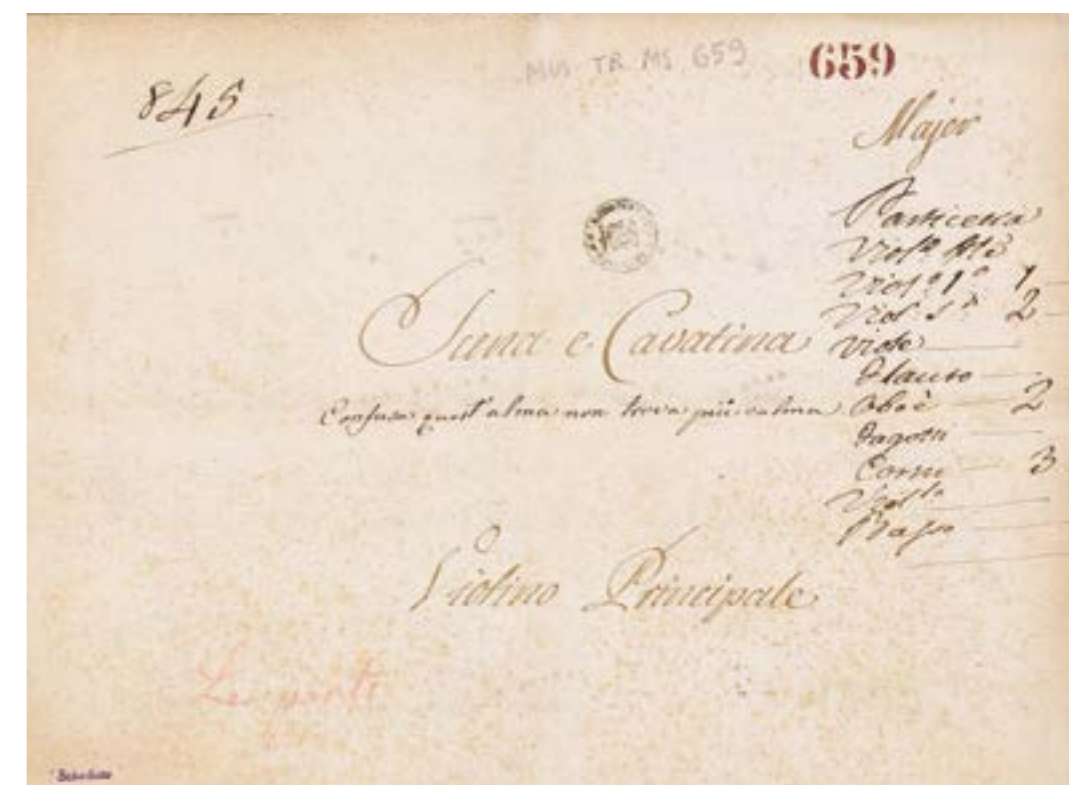 MUS TR MS 659
659
845
Majer
Particella
Viol.º 1º 1
Viol. 2
Viole
Flauto
Oboè 2
Fagotti
Corni 3
Basso
Scena e Cavatina
Confusa quest'alma non trova più calma
Violino Principale
Le parti